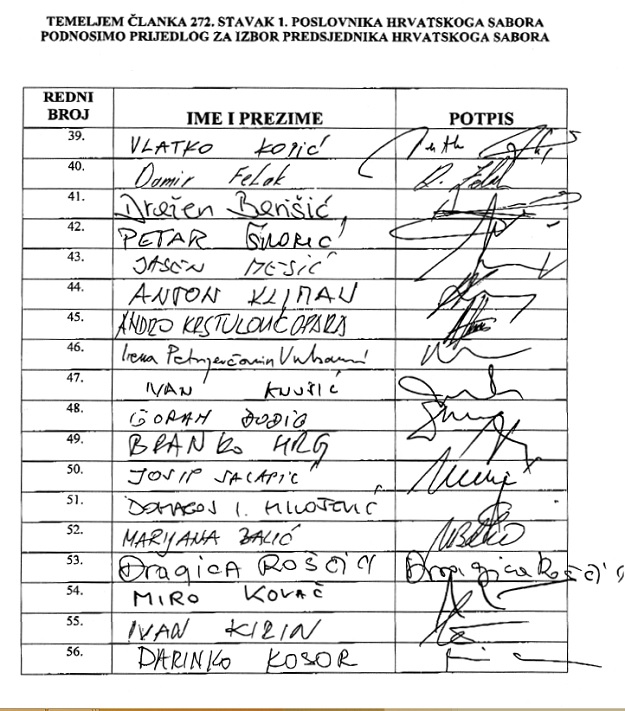 TEMELJEM ČLANKA 272. STAVAK 1. POSLOVNIKA HRVATSKOGA SABORA
PODNOSIMO PRIJEDLOG ZA IZBOR PREDSJEDNIKA HRVATSKOGA SABORA
REDNI BROJ IME I PREZIME POTPIS
39. VLATKO
40. Damir Felak
41. Dražen Barišić
42. PETAR ŠKORIĆ
43. JASEN MESIĆ
44. ANTON KLIMAN
45. ANDRO KRSTULOVIĆ OPARA
46. Irena Petrijevčanin Vuksanović
47. IVAN
48. GORAN DODIG
49. BRANKO HRG
50. JOSIP SALAPIĆ
51. DOMAGOJ I. MILOŠEVIĆ
52. MARIJANA BALIĆ
53. Dragica ROŠČIĆ Dragica Roščić
54. MIRO KOVAČ
55. IVAN KIRIN
56. DARINKO KOSOR